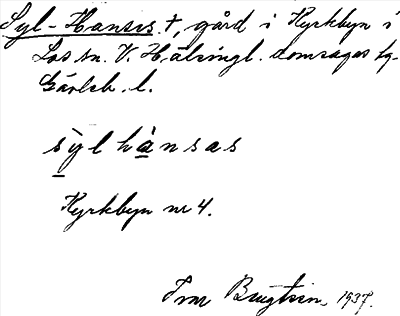 Syl-Hanses †, gård i Kyrkbyn i
Los sn. V. Hälsingl. domsagas tg.
Gävleb. l.
sỳlhànsas
Kyrkbyn nr 4.
Ivar Bengtsson, 1937.